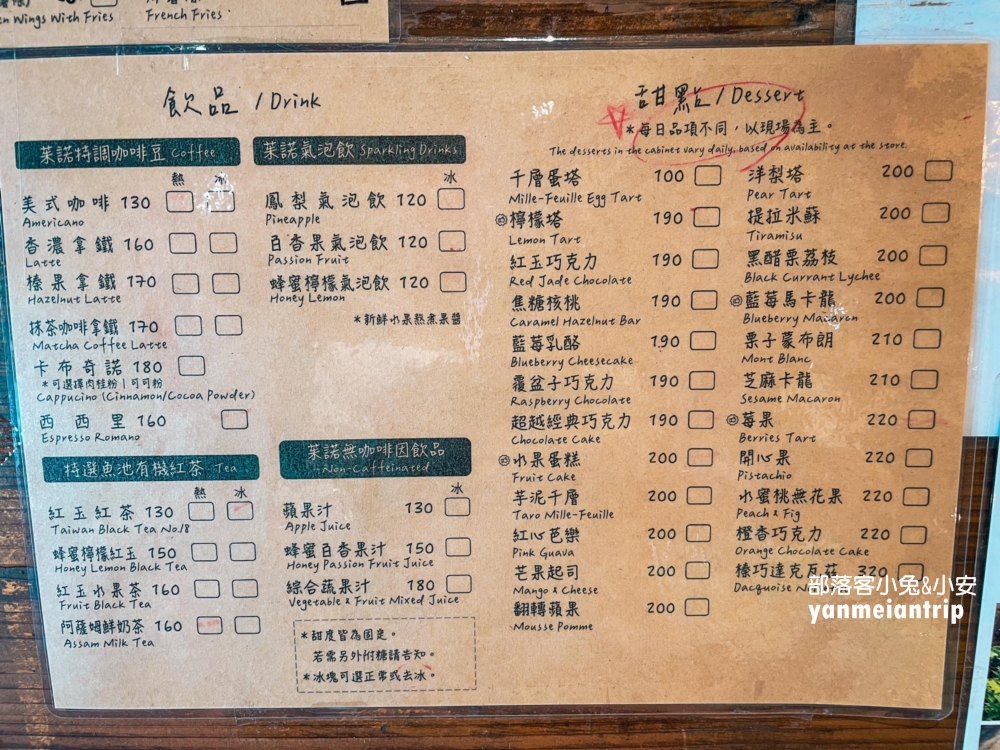 en Wings With Fries
French Fries
飲品 / Drink
茱諾特調咖啡豆 Coffee
熱 冰
美式咖啡 130
Americano
香濃拿鐵 160
Latte
榛果拿鐵 170
Hazelnut Latte
抹茶咖啡拿鐵 170
Matcha Coffee Latte
卡布奇諾 180
*可選擇肉桂粉|可可粉
Cappucino (Cinnamon/Cocoa Powder)
西西里 160
Espresso Romano
特選魚池有機紅茶 Tea
熱 冰
紅玉紅茶 130
Taiwan Black Tea No.18
蜂蜜檸檬紅玉 150
Honey Lemon Black Tea
紅玉水果茶 160
Fruit Black Tea
阿薩姆鮮奶茶 160
Assam Milk Tea
茱諾氣泡飲 Sparkling Drinks
冰
鳳梨氣泡飲 120
Pineapple
百香果氣泡飲 120
Passion Fruit
蜂蜜檸檬氣泡飲 120
Honey Lemon
*新鮮水果熬煮果醬
茱諾無咖啡因飲品
Non-Caffeinated
冰
蘋果汁 130
Apple Juice
蜂蜜百香果汁 150
Honey Passion Fruit Juice
綜合蔬果汁 180
Vegetable & Fruit Mixed Juice
*甜度皆為固定。
若需另外附糖請告知。
*冰塊可選正常或去冰。
甜點 / Dessert
*每日品項不同,以現場為主。
The desserts in the cabinet vary daily, based on availability at the store
千層蛋塔 100
Mille-Feuille Egg Tart
檸檬塔 190
Lemon Tart
紅玉巧克力 190
Red Jade Chocolate
焦糖核桃 190
Caramel Hazelnut Bar
藍莓乳酪 190
Blueberry Cheesecake
覆盆子巧克力 190
Raspberry Chocolate
超越經典巧克力 190
Chocolate Cake
水果蛋糕 200
Fruit Cake
芋泥千層 200
Taro Mille-Feuille
紅心芭樂 200
Pink Guava
芒果起司 200
Mango & Cheese
翻轉蘋果 200
Mousse Pomme
洋梨塔 200
Pear Tart
提拉米蘇 200
Tiramisu
黑醋栗荔枝 200
Black Currant Lychee
藍莓馬卡龍 200
Blueberry Macaron
栗子蒙布朗 210
Mont Blanc
芝麻卡龍 210
Sesame Macaron
莓果 220
Berries Tart
開心果 220
Pistachio
水蜜桃無花果 220
Peach & Fig
橙香巧克力 220
Orange Chocolate Cake
榛巧達克瓦茲 320
Dacquoise
部落客小兔&小安
yanmeiantrip